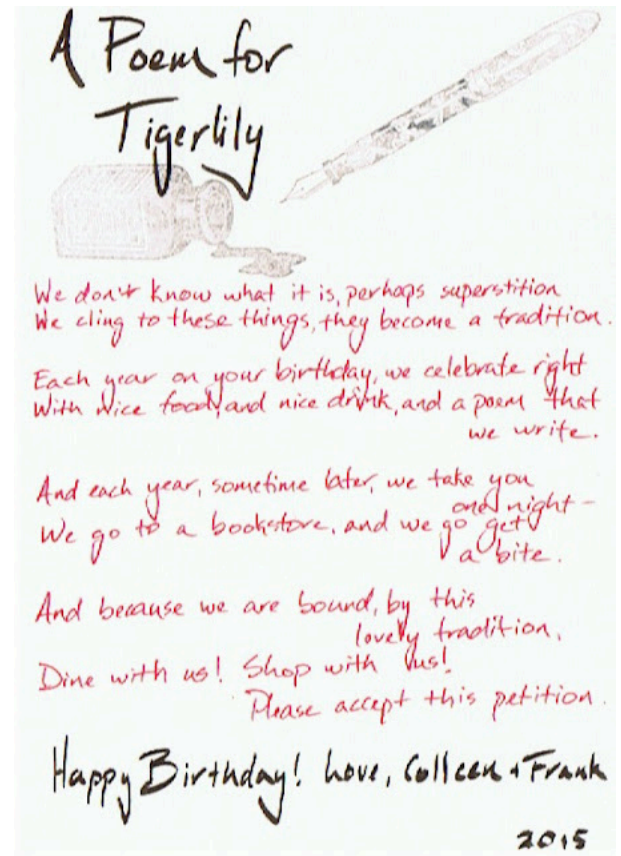 A Poem for
Tigerlily
We don't know what it is, perhaps superstition
We cling to these things, they become a tradition.
Each year on your birthday, we celebrate right
With nice food, and nice drink, and a poem that
we write.
And each year, sometime later, we take you
one night –
We go to a bookstore, and we go get
a bite.
And because we are bound, by this
lovely tradition,
Dine with us! Shop with us!
Please accept this petition.
Happy Birthday! Love, Colleen + Frank
2015